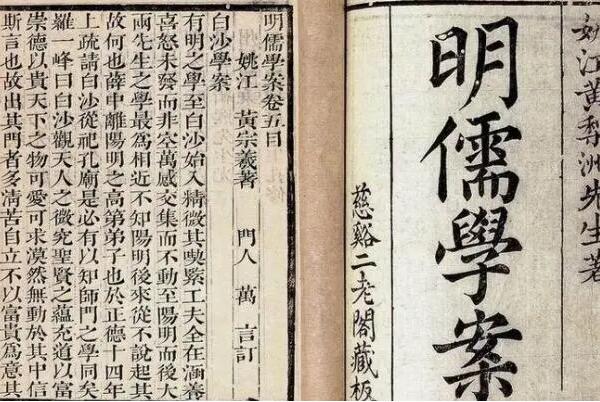 姚江黄梨洲先生著
明儒學案
慈谿二老閣藏板
明儒學案卷五目
姚江 黃宗羲著 門人 萬 言訂
白沙學案
有明之學至白沙始入精微其喫緊工夫全在涵養
喜怒未發而非空萬感交集而不動至陽明而後大
兩先生之學最爲相近不知陽明後來從不說起其
故何也薛中離陽明之高第弟子也於正德十四年
上疏請白沙從祀孔廟是必有以知師門之學同矣
羅一峰曰白沙觀天人之微究聖賢之蘊充道以富
崇德以貴天下之物可愛可求漠然無動於其中信
斯言也故出其門者多清苦自立不以富貴爲意其